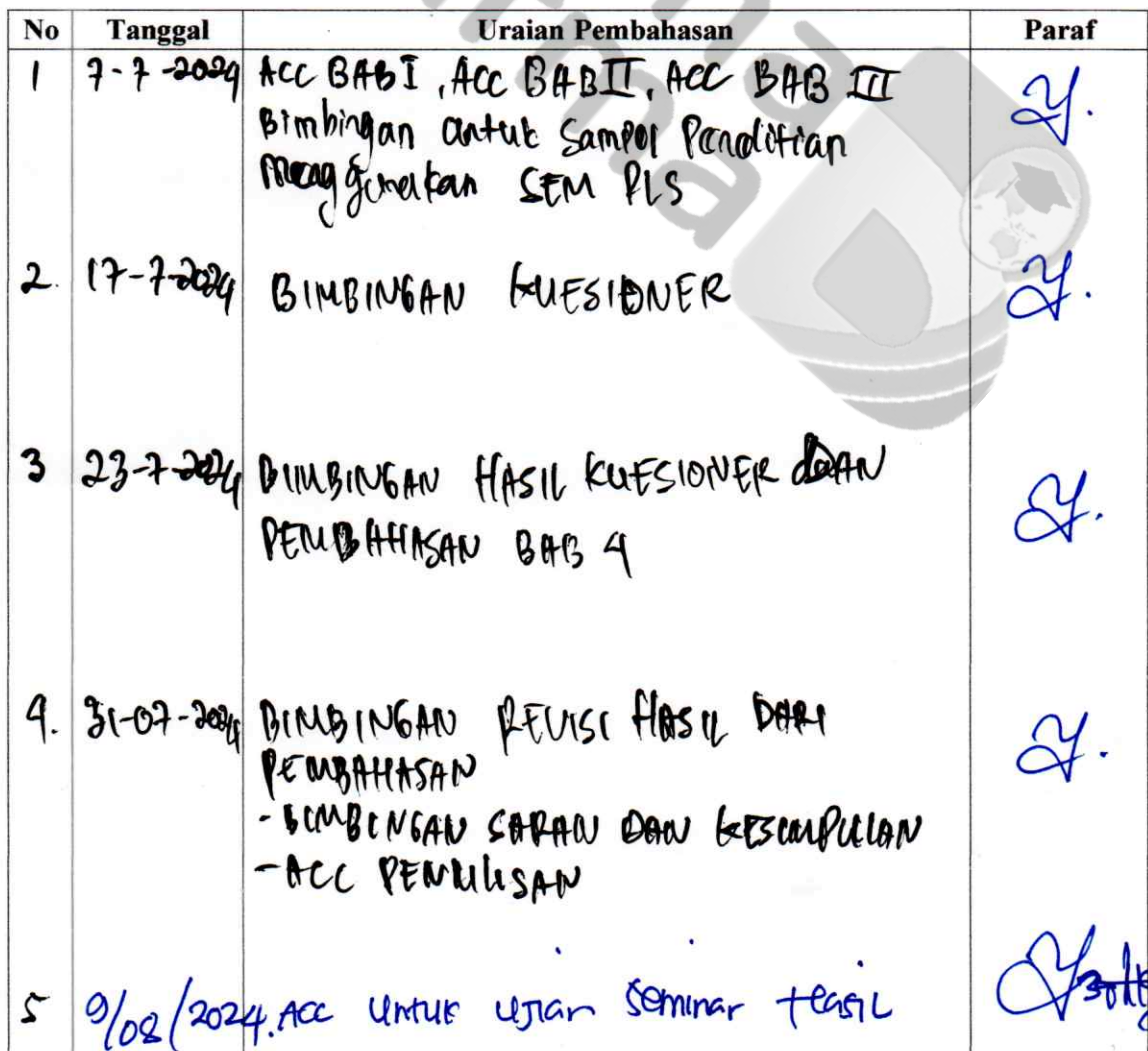 No Tanggal Uraian Pembahasan Paraf
1 7-7-2024 ACC BAB I, ACC BAB II, ACC BAB III
Bimbingan untuk Sampel Penelitian
menggunakan SEM PLS
2. 17-7-2024 BIMBINGAN KUESIONER
3 23-7-2024 BIMBINGAN HASIL KUESIONER DAN
PEMBAHASAN BAB 4
4. 31-07-2024 BIMBINGAN REVISI HASIL DARI
PEMBAHASAN
- BIMBINGAN SARAN DAN KESIMPULAN
- ACC PENULISAN
5 9/08/2024. ACC untuk ujian seminar Hasil